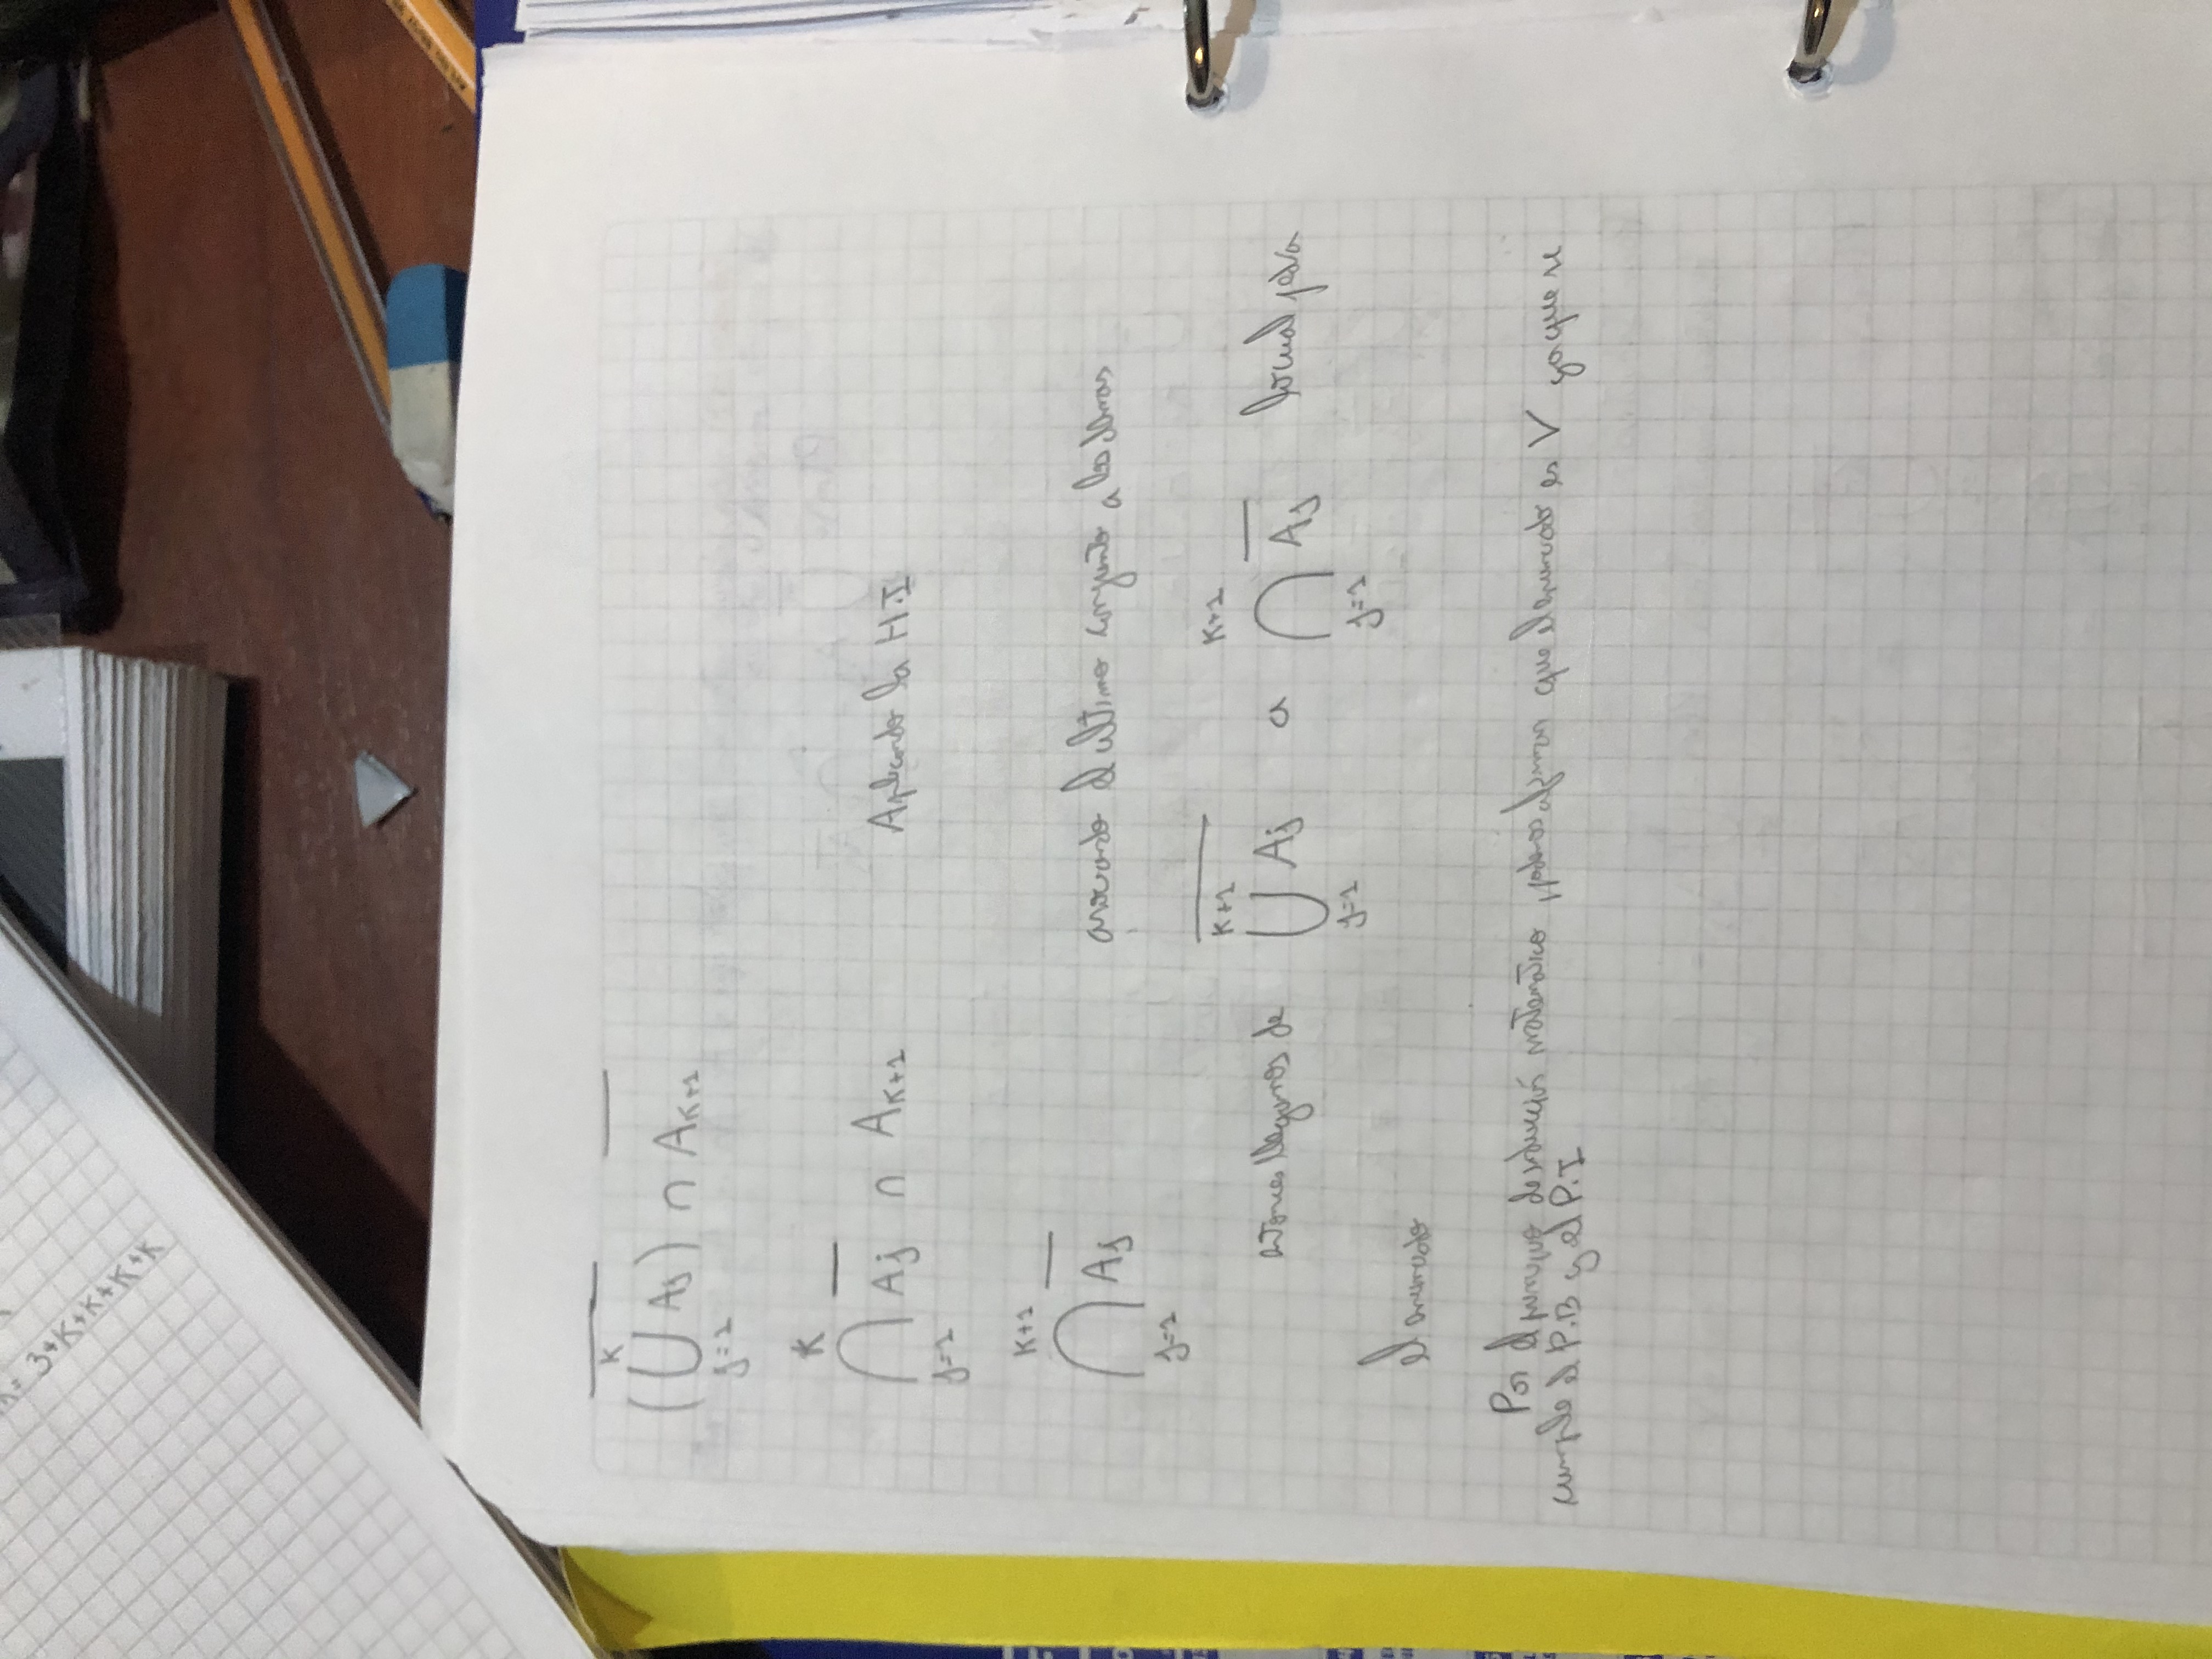 = 3+K+K+K+K
K
(⋃ Aj) ∩ A̅K+1
j=1
K
⋂ A̅j ∩ AK+1 Aplicando la H.I
j=1
K+1
⋂ A̅j asociando el ultimo conjunto a los demas
j=1
K+1 K+1
entonces llegamos de ⋃ Aj a ⋂ A̅j lo cual
j=1 j=1
el enunciado
Por el principio de inducción matemático, podemos afirmar que el enunciado es V ya que se
cumple el P.B y el P.I